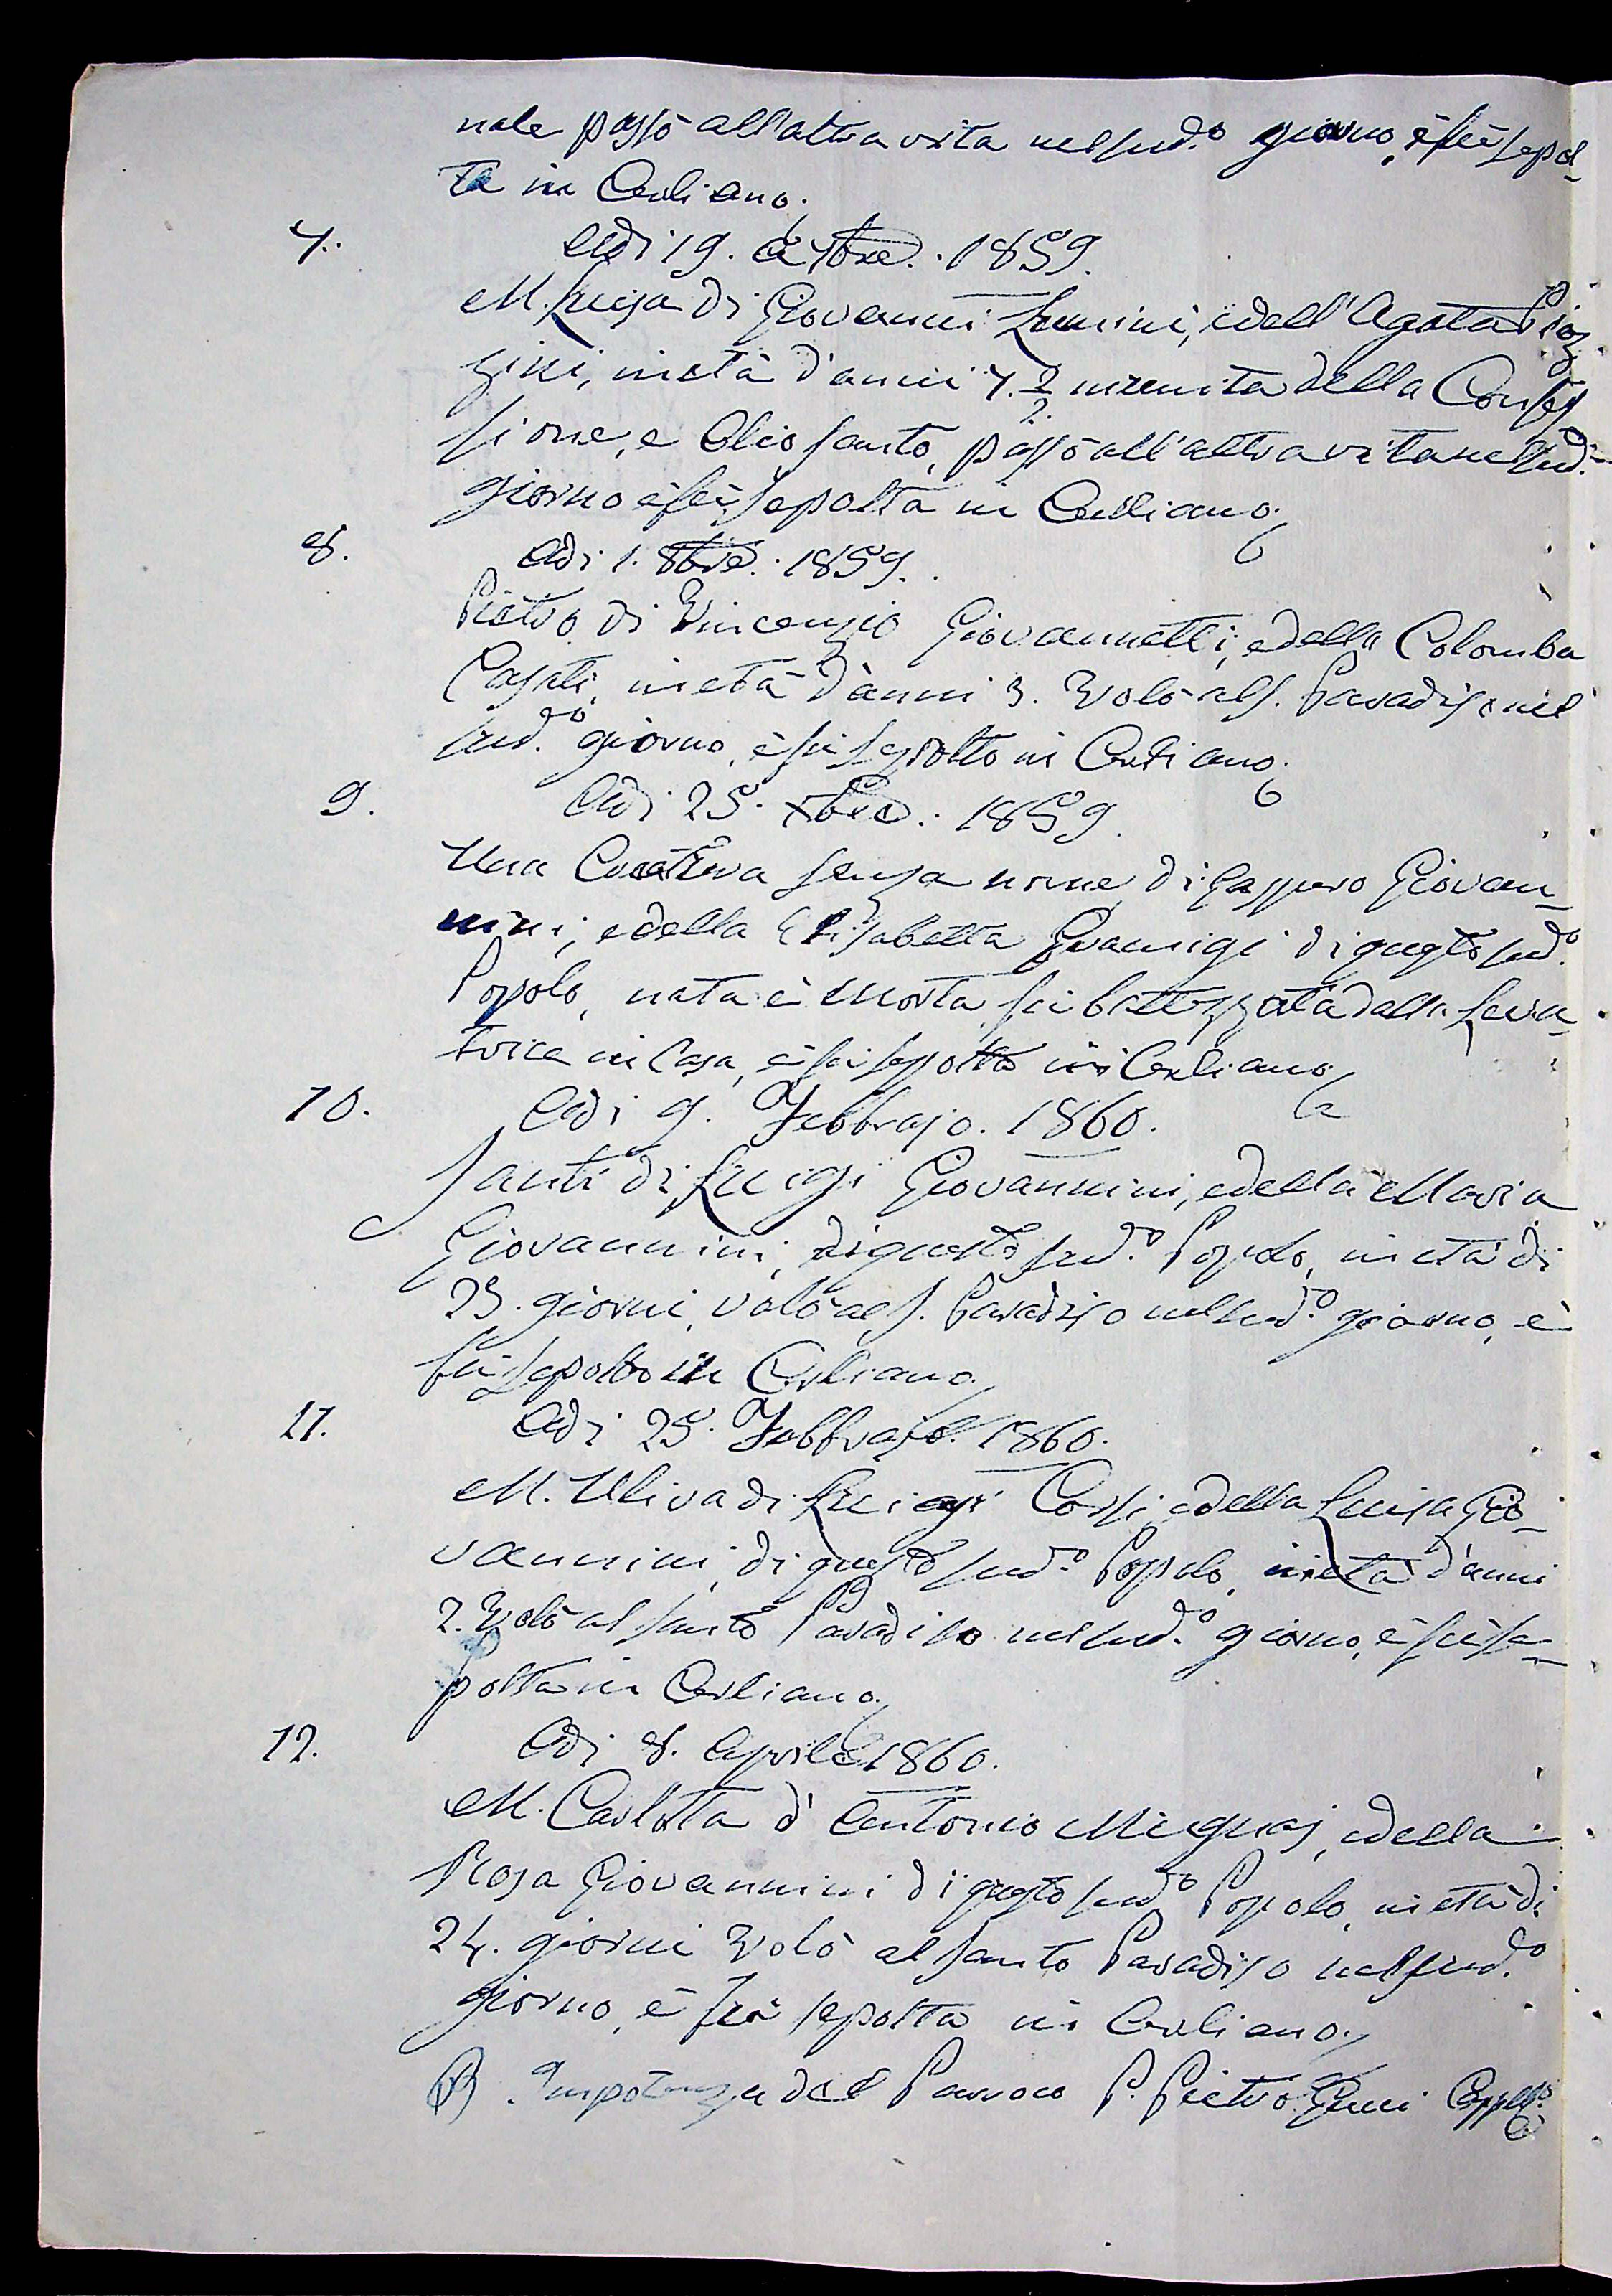 nale passò all'altra vita nel sud.º giorno, e fù sepol-
ta in Cerliano.
7. Adi 19. 7bre. 1859.
M. Luisa di Giovanni Lunini, e dell'Agata Piaz
zini, in età d'anni 7. munita della Confes
sione, e Olio santo, passò all'altra vita nel sud.
giorno e fù sepolta in Cerliano.
8. Adi 1. 8bre. 1859.
Pietro di Vincenzio Giovannetti, e della Colomba
Casati, in età d'anni 3. Volò al S. Paradiso nel
sud.º giorno, e fù sepolto in Cerliano.
9. Adi 25. Xbre. 1859.
Una Creatura senza nome di Gasparo Giovan-
nini, e della Elisabetta Gramigi di questo sud.º
Popolo, nata e morta fù battezzata dalla Leva-
trice in Casa, e fù sepolta in Cerliano
10. Adi 9. Febbrajo. 1860.
Santi di Luigi Giovannini, e della Maria
Giovannini, di questo sud.º Popolo, in età di
23. giorni, volò al S. Paradiso nel sud.º giorno, e
fù sepolto in Cerliano.
11. Adi 25. Febbrajo. 1860.
M. Uliva di Luigi Corsi, e della Luisa Gio-
vannini, di questo sud.º Popolo, in età d'anni
2. Volò al santo Paradiso nel sud.º giorno, e fù se-
polta in Cerliano.
12. Adi 8. Aprile 1860.
M. Carlotta d'Antonio Mignaj, e della
Rosa Giovannini di questo sud.º Popolo, in età di
24. giorni Volò al santo Paradiso nel sud.º
giorno, e fù sepolta in Cerliano.
Impotenza del Parroco P. Pietro Capp.º